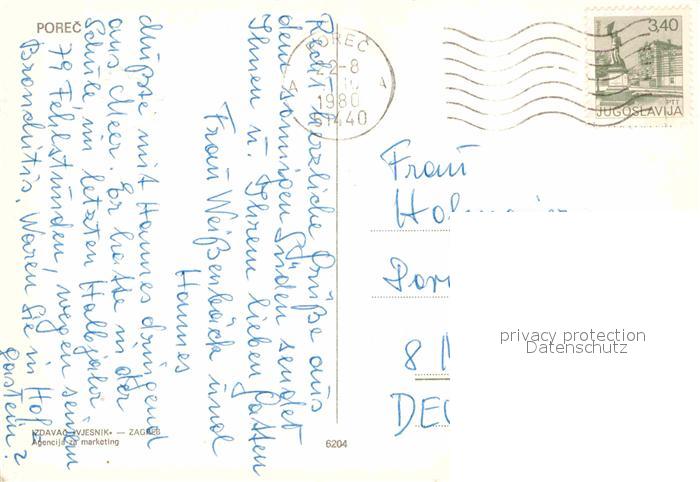 POREČ
POREČ
2-8
1980
51440
A
A
3,40
PTT
JUGOSLAVIJA
Recht herzliche Grüße aus
dem sonnigen Süden sendet
Ihnen u. Ihrem lieben Gatten
Frau Weißenböck und
Hannes
dußte mit Hannes dringend
ans Meer. Er hatte in der
Schule im letzten Halbjahr
79 Fehlstunden, wegen seiner
Bronchitis. Waren Sie in Hof
gastein?
Frau
Dor
8
DEU
privacy protection
Datenschutz
IZDAVAČ »VJESNIK« — ZAGREB
Agencija za marketing
6204